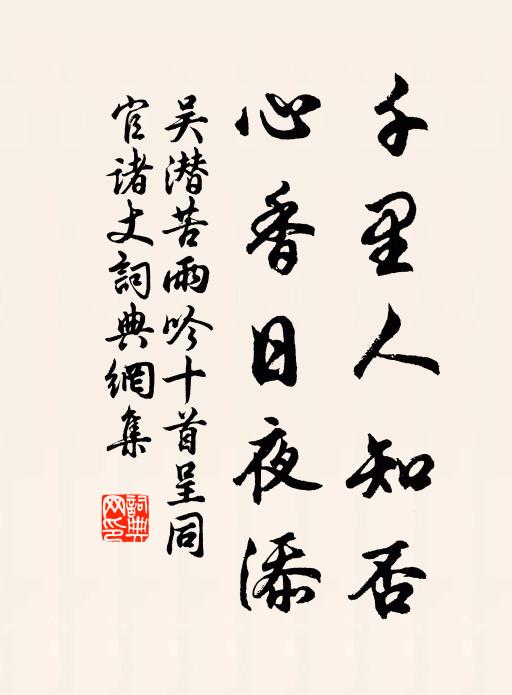 千里人知否
心香日夜添
吴潜苦雨吟十首呈同
官诸丈詞典網集
詞典
网印